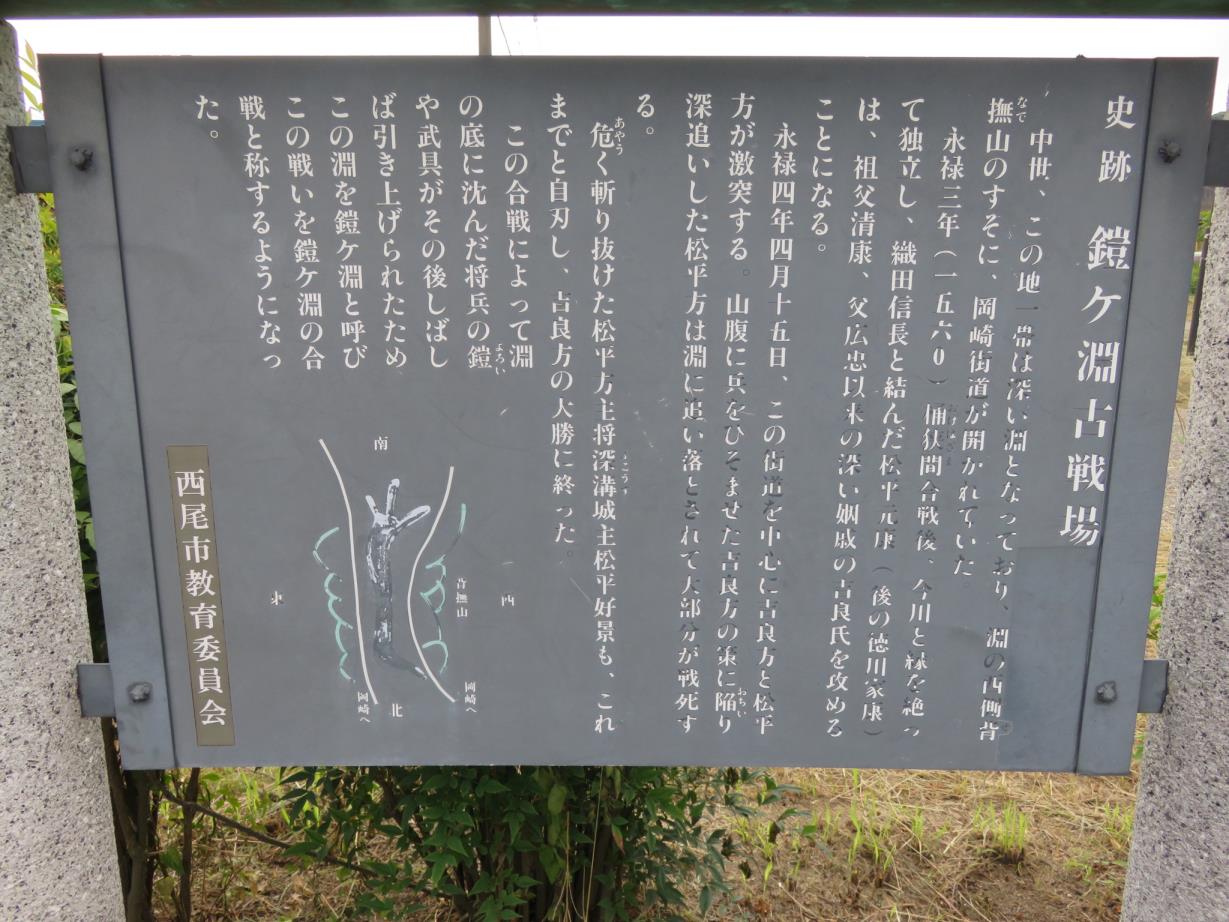 史跡 鎧ケ淵古戦場
中世、この地一帯は深い淵となっており、淵の西側背
撫山のすそに、岡崎街道が開かれていた
永禄三年(一五六〇)桶狭間合戦後、今川と縁を絶っ
て独立し、織田信長と結んだ松平元康(後の徳川家康)
は、祖父清康、父広忠以来の深い姻戚の吉良氏を攻める
ことになる。
永禄四年四月十五日、この街道を中心に吉良方と松平
方が激突する。山腹に兵をひそませた吉良方の策に陥り
深追いした松平方は淵に追い落とされて大部分が戦死す
る。
危く斬り抜けた松平方主将深溝城主松平好景も、これ
までと自刃し、吉良方の大勝に終った。
この合戦によって淵
の底に沈んだ将兵の鎧
や武具がその後しばし
ば引き上げられたため、
この淵を鎧ケ淵と呼び
この戦いを鎧ケ淵の合
戦と称するようになっ
た。
南
西
背撫山
東
岡崎へ
北
岡崎へ
西尾市教育委員会